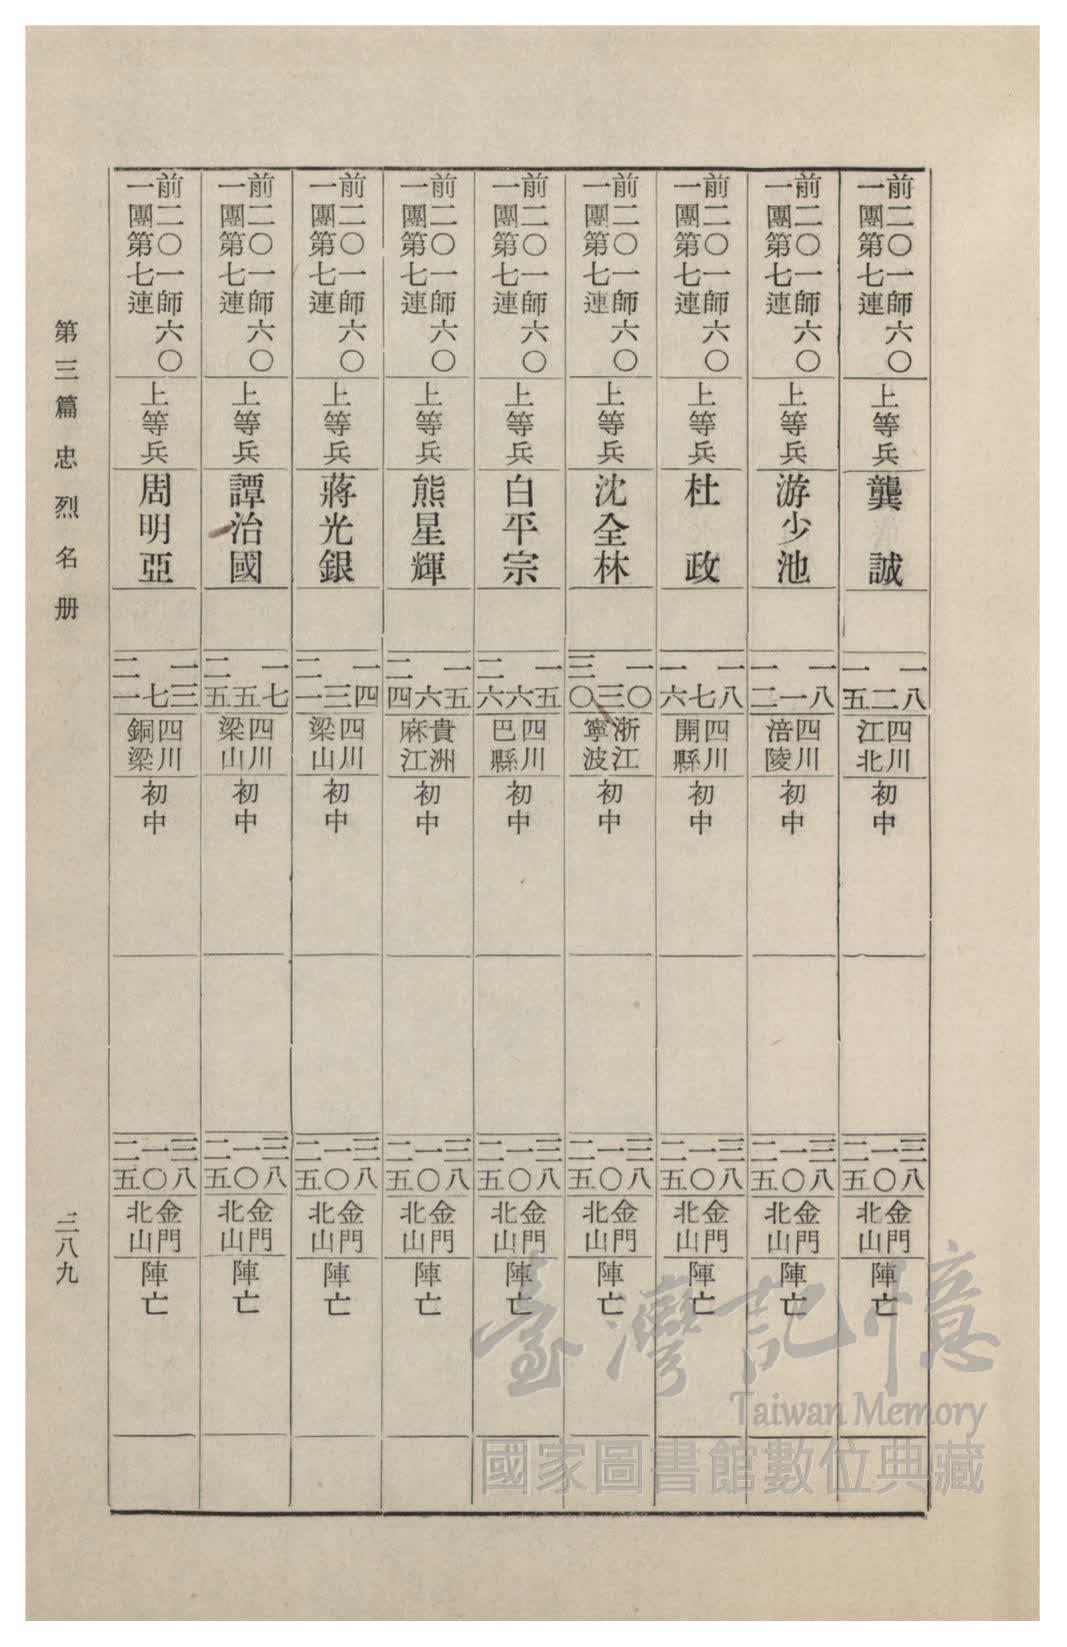 前二〇一師六〇
一團第七連
上等兵
龔誠
一八
二
一五
四川
江北
初中
三八
一〇
二五
金門
北山
陣亡
前二〇一師六〇
一團第七連
上等兵
游少池
一八
一
一二
四川
涪陵
初中
三八
一〇
二五
金門
北山
陣亡
前二〇一師六〇
一團第七連
上等兵
杜政
一八
七
一六
四川
開縣
初中
三八
一〇
二五
金門
北山
陣亡
前二〇一師六〇
一團第七連
上等兵
沈全林
一〇
三
三〇
浙江
寧波
初中
三八
一〇
二五
金門
北山
陣亡
前二〇一師六〇
一團第七連
上等兵
白平宗
一五
六
二六
四川
巴縣
初中
三八
一〇
二五
金門
北山
陣亡
前二〇一師六〇
一團第七連
上等兵
熊星輝
一五
六
二四
貴洲
麻江
初中
三八
一〇
二五
金門
北山
陣亡
前二〇一師六〇
一團第七連
上等兵
蔣光銀
一四
三
二一
四川
梁山
初中
三八
一〇
二五
金門
北山
陣亡
前二〇一師六〇
一團第七連
上等兵
譚治國
一七
五
二五
四川
梁山
初中
三八
一〇
二五
金門
北山
陣亡
前二〇一師六〇
一團第七連
上等兵
周明亞
一三
七
二一
四川
銅梁
初中
三八
一〇
二五
金門
北山
陣亡
第三篇 忠烈名册
三八九
臺灣記憶
Taiwan Memory
國家圖書館數位典藏